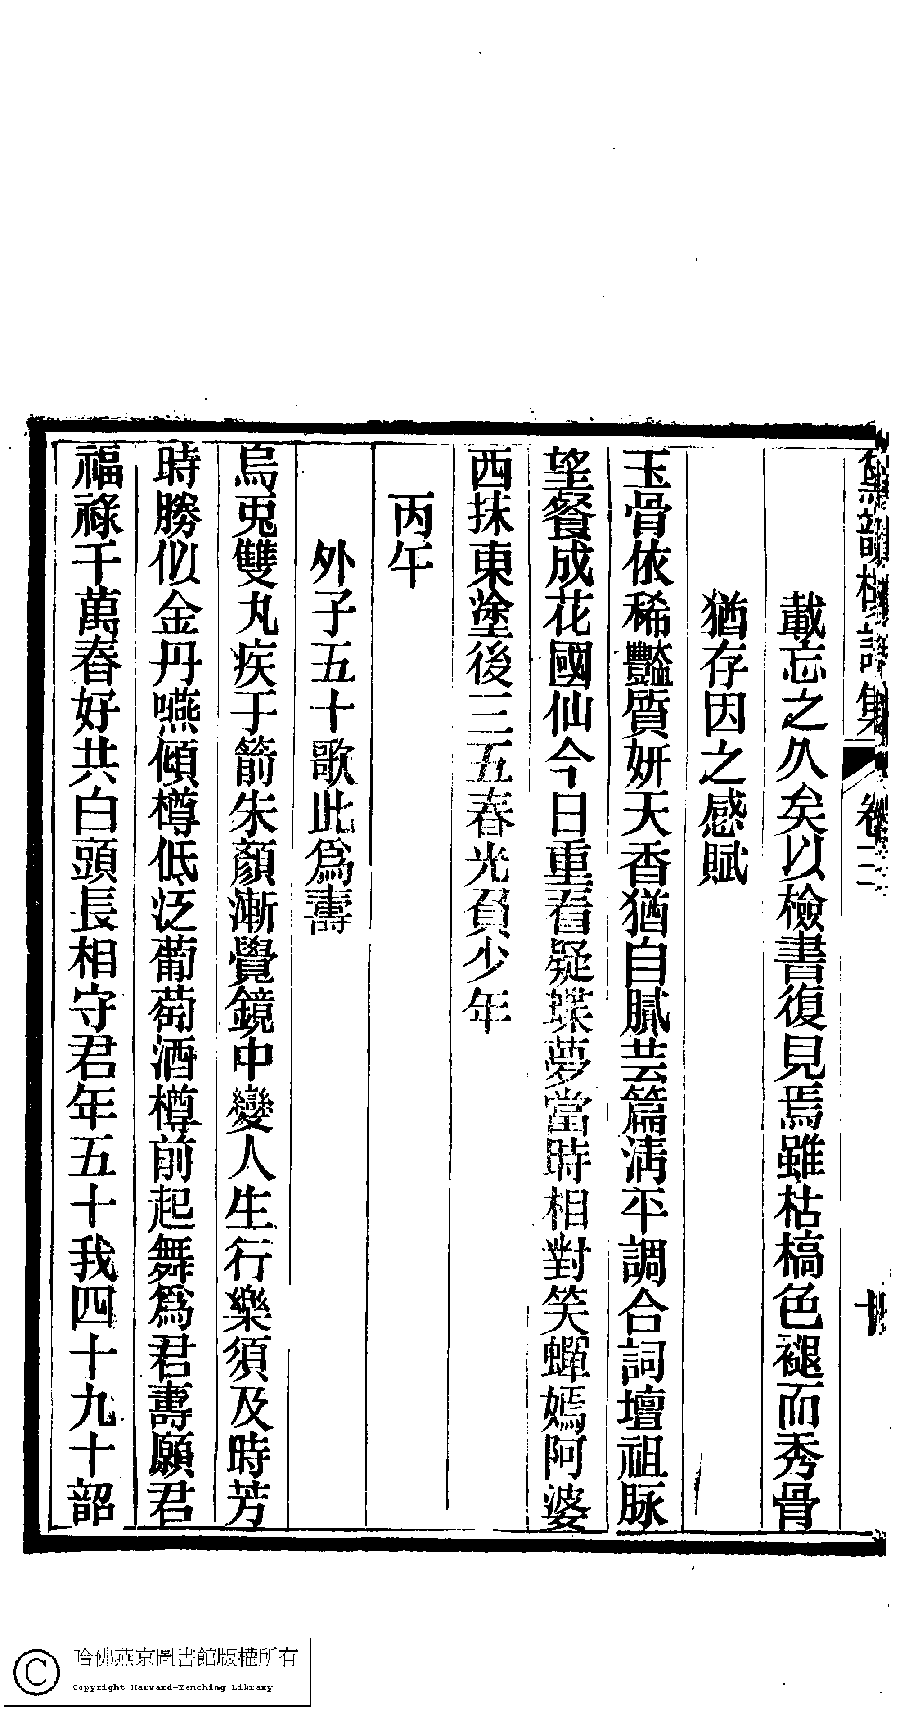 黛韻樓詩集 卷
載忘之久矣以檢書復見焉雖枯槁色褪而秀骨
猶存因之感賦
玉骨依稀豔質妍天香猶自膩芸篇淸平調合詞壇祖脉
望餐成花國仙今日重看疑蝶夢當時相對笑蟬嫣阿婆
西抹東塗後三五春光負少年
丙午
外子五十歌此爲壽
烏兎雙丸疾于箭朱顏漸覺鏡中變人生行樂須及時芳
時勝似金丹嚥傾樽低泛葡萄酒樽前起舞爲君壽願君
福祿千萬春好共白頭長相守君年五十我四十九十韶
哈佛燕京圖書館版權所有
Copyright Harvard-Yenching Library